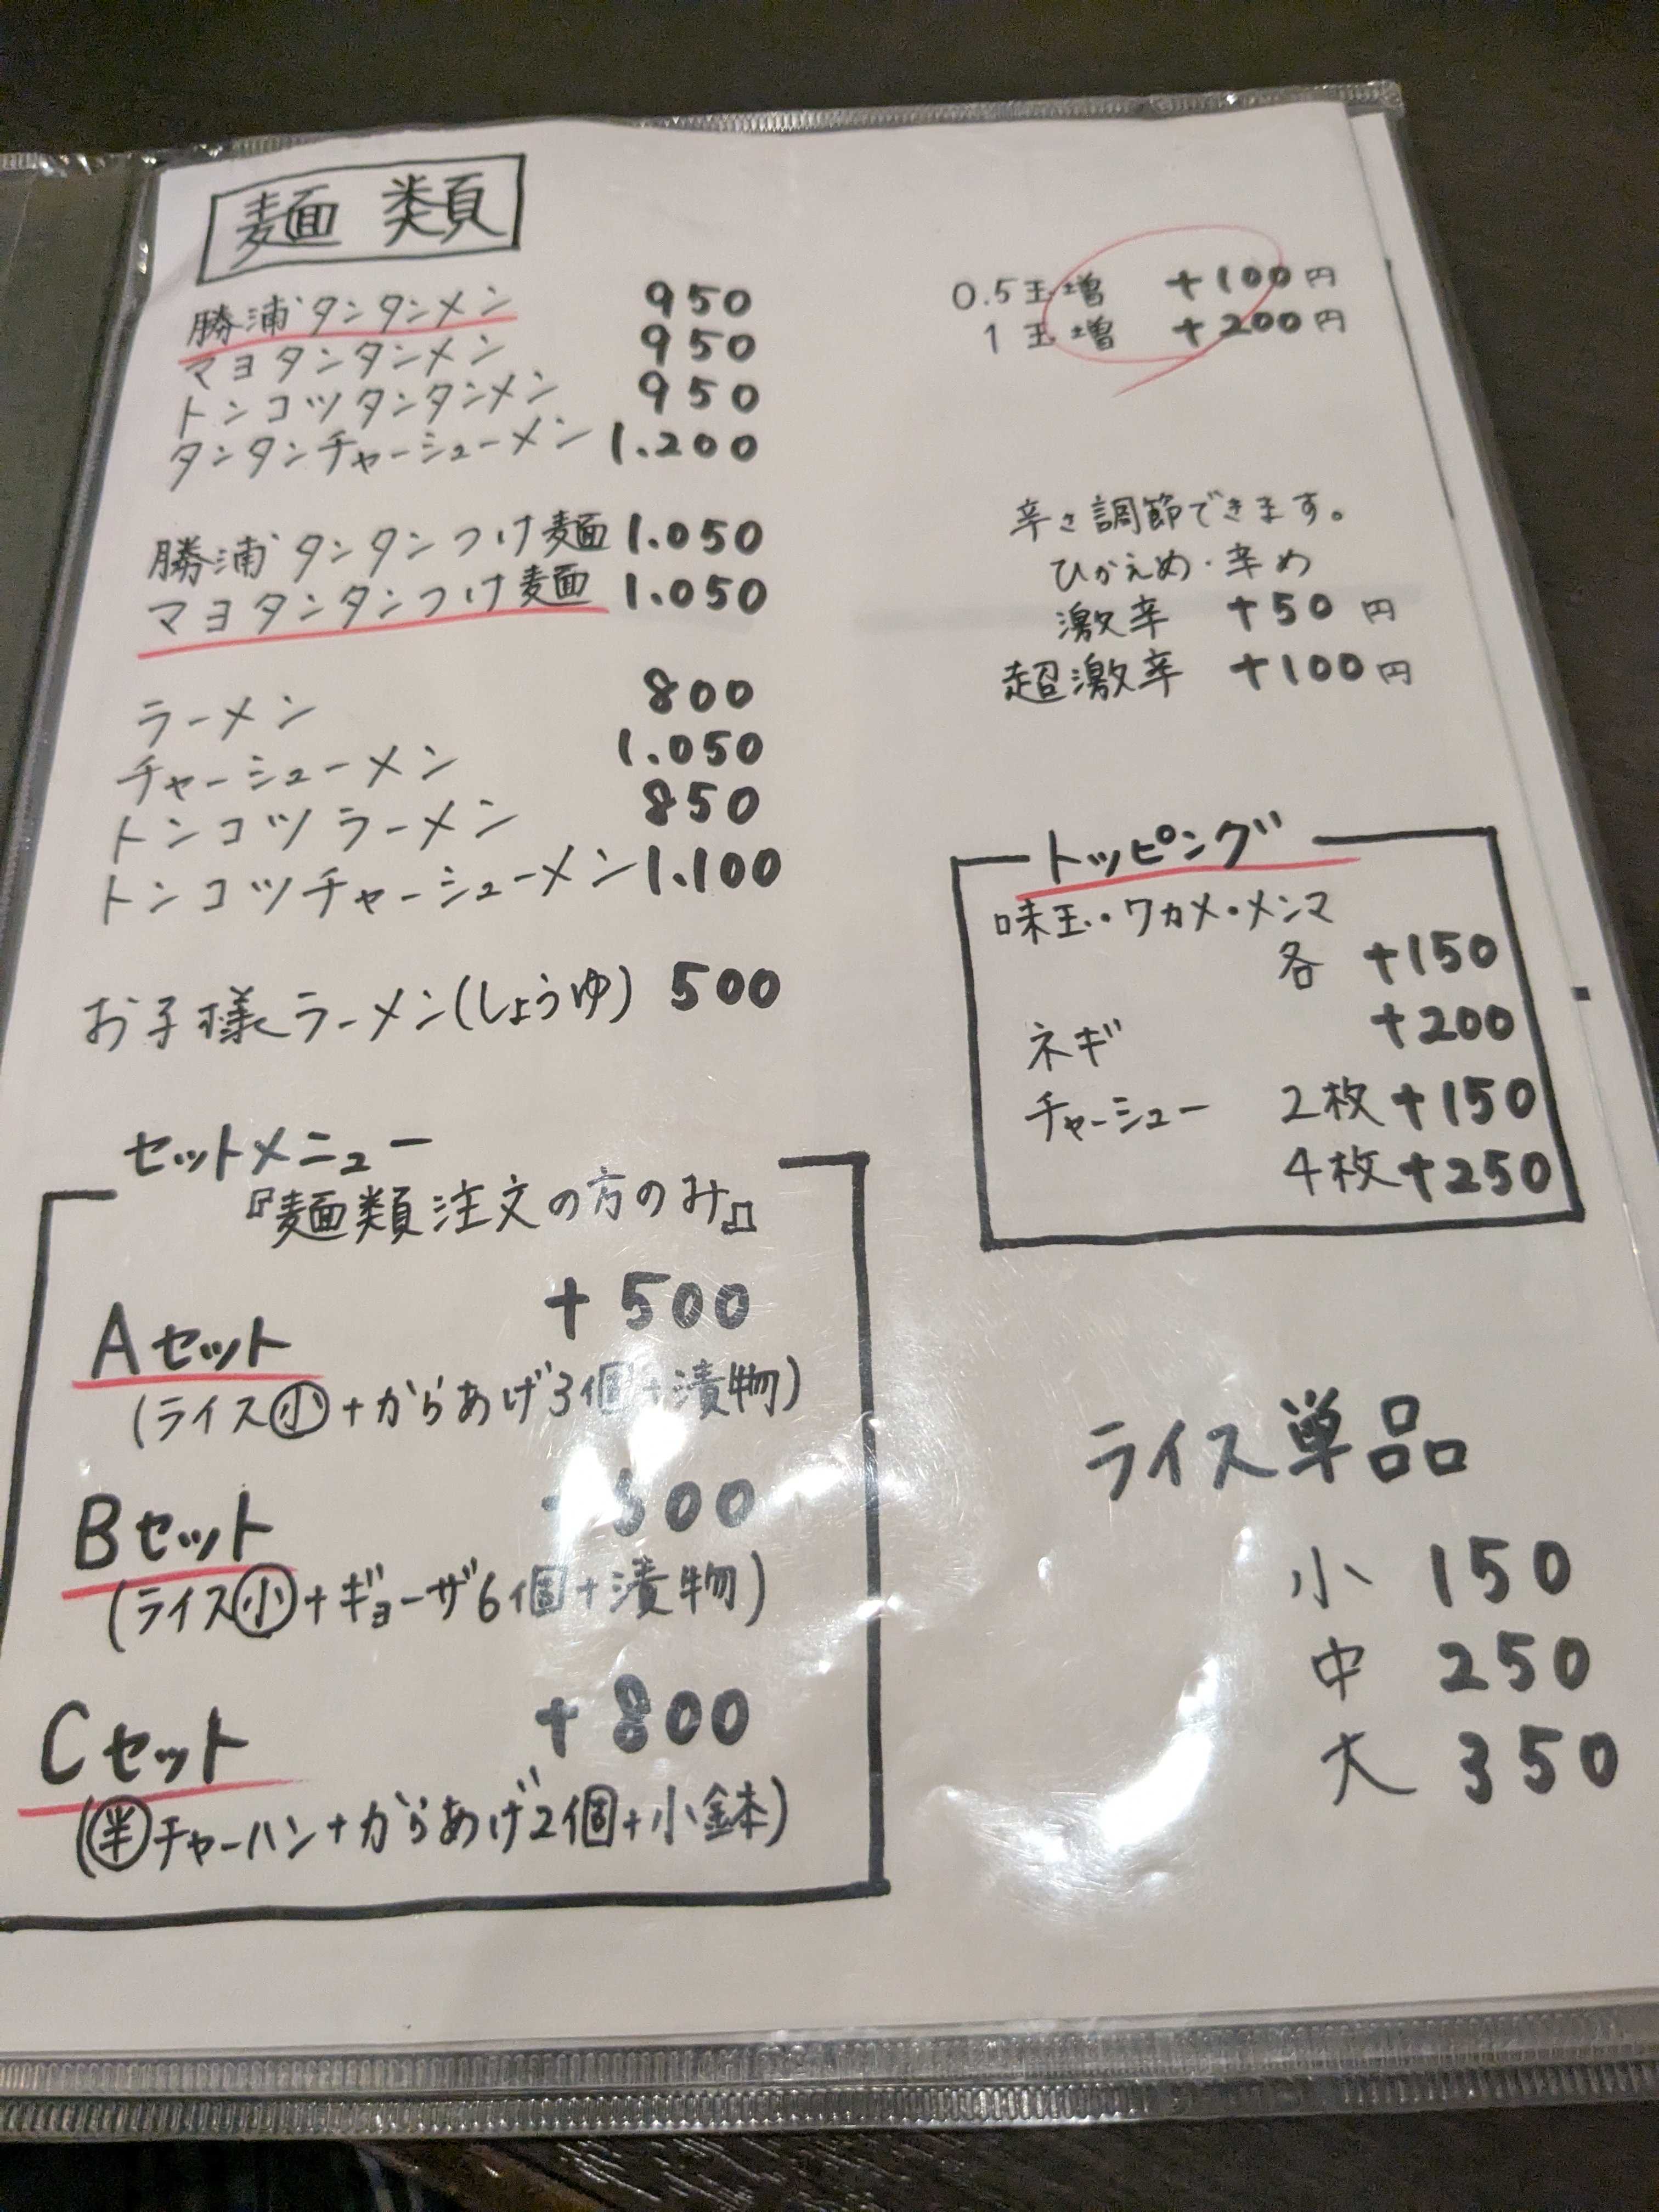 麺類
勝浦タンタンメン 950
マヨタンタンメン 950
トンコツタンタンメン 950
タンタンチャーシューメン 1.200
勝浦タンタンつけ麺 1.050
マヨタンタンつけ麺 1.050
ラーメン 800
チャーシューメン 1.050
トンコツラーメン 850
トンコツチャーシューメン 1.100
お子様ラーメン(しょうゆ) 500
セットメニュー
『麺類注文の方のみ』
Aセット +500
(ライス小+からあげ3個+漬物)
Bセット
(ライス小+ギョーザ6個+漬物)
Cセット +800
(半チャーハン+からあげ2個+小鉢)
0.5玉増 +100円
1玉増 +200円
辛さ調節できます。
ひかえめ・辛め
激辛 +50円
超激辛 +100円
トッピング
味玉・ワカメ・メンマ
各 +150
ネギ +200
チャーシュー 2枚+150
4枚+250
ライス単品
小 150
中 250
大 350